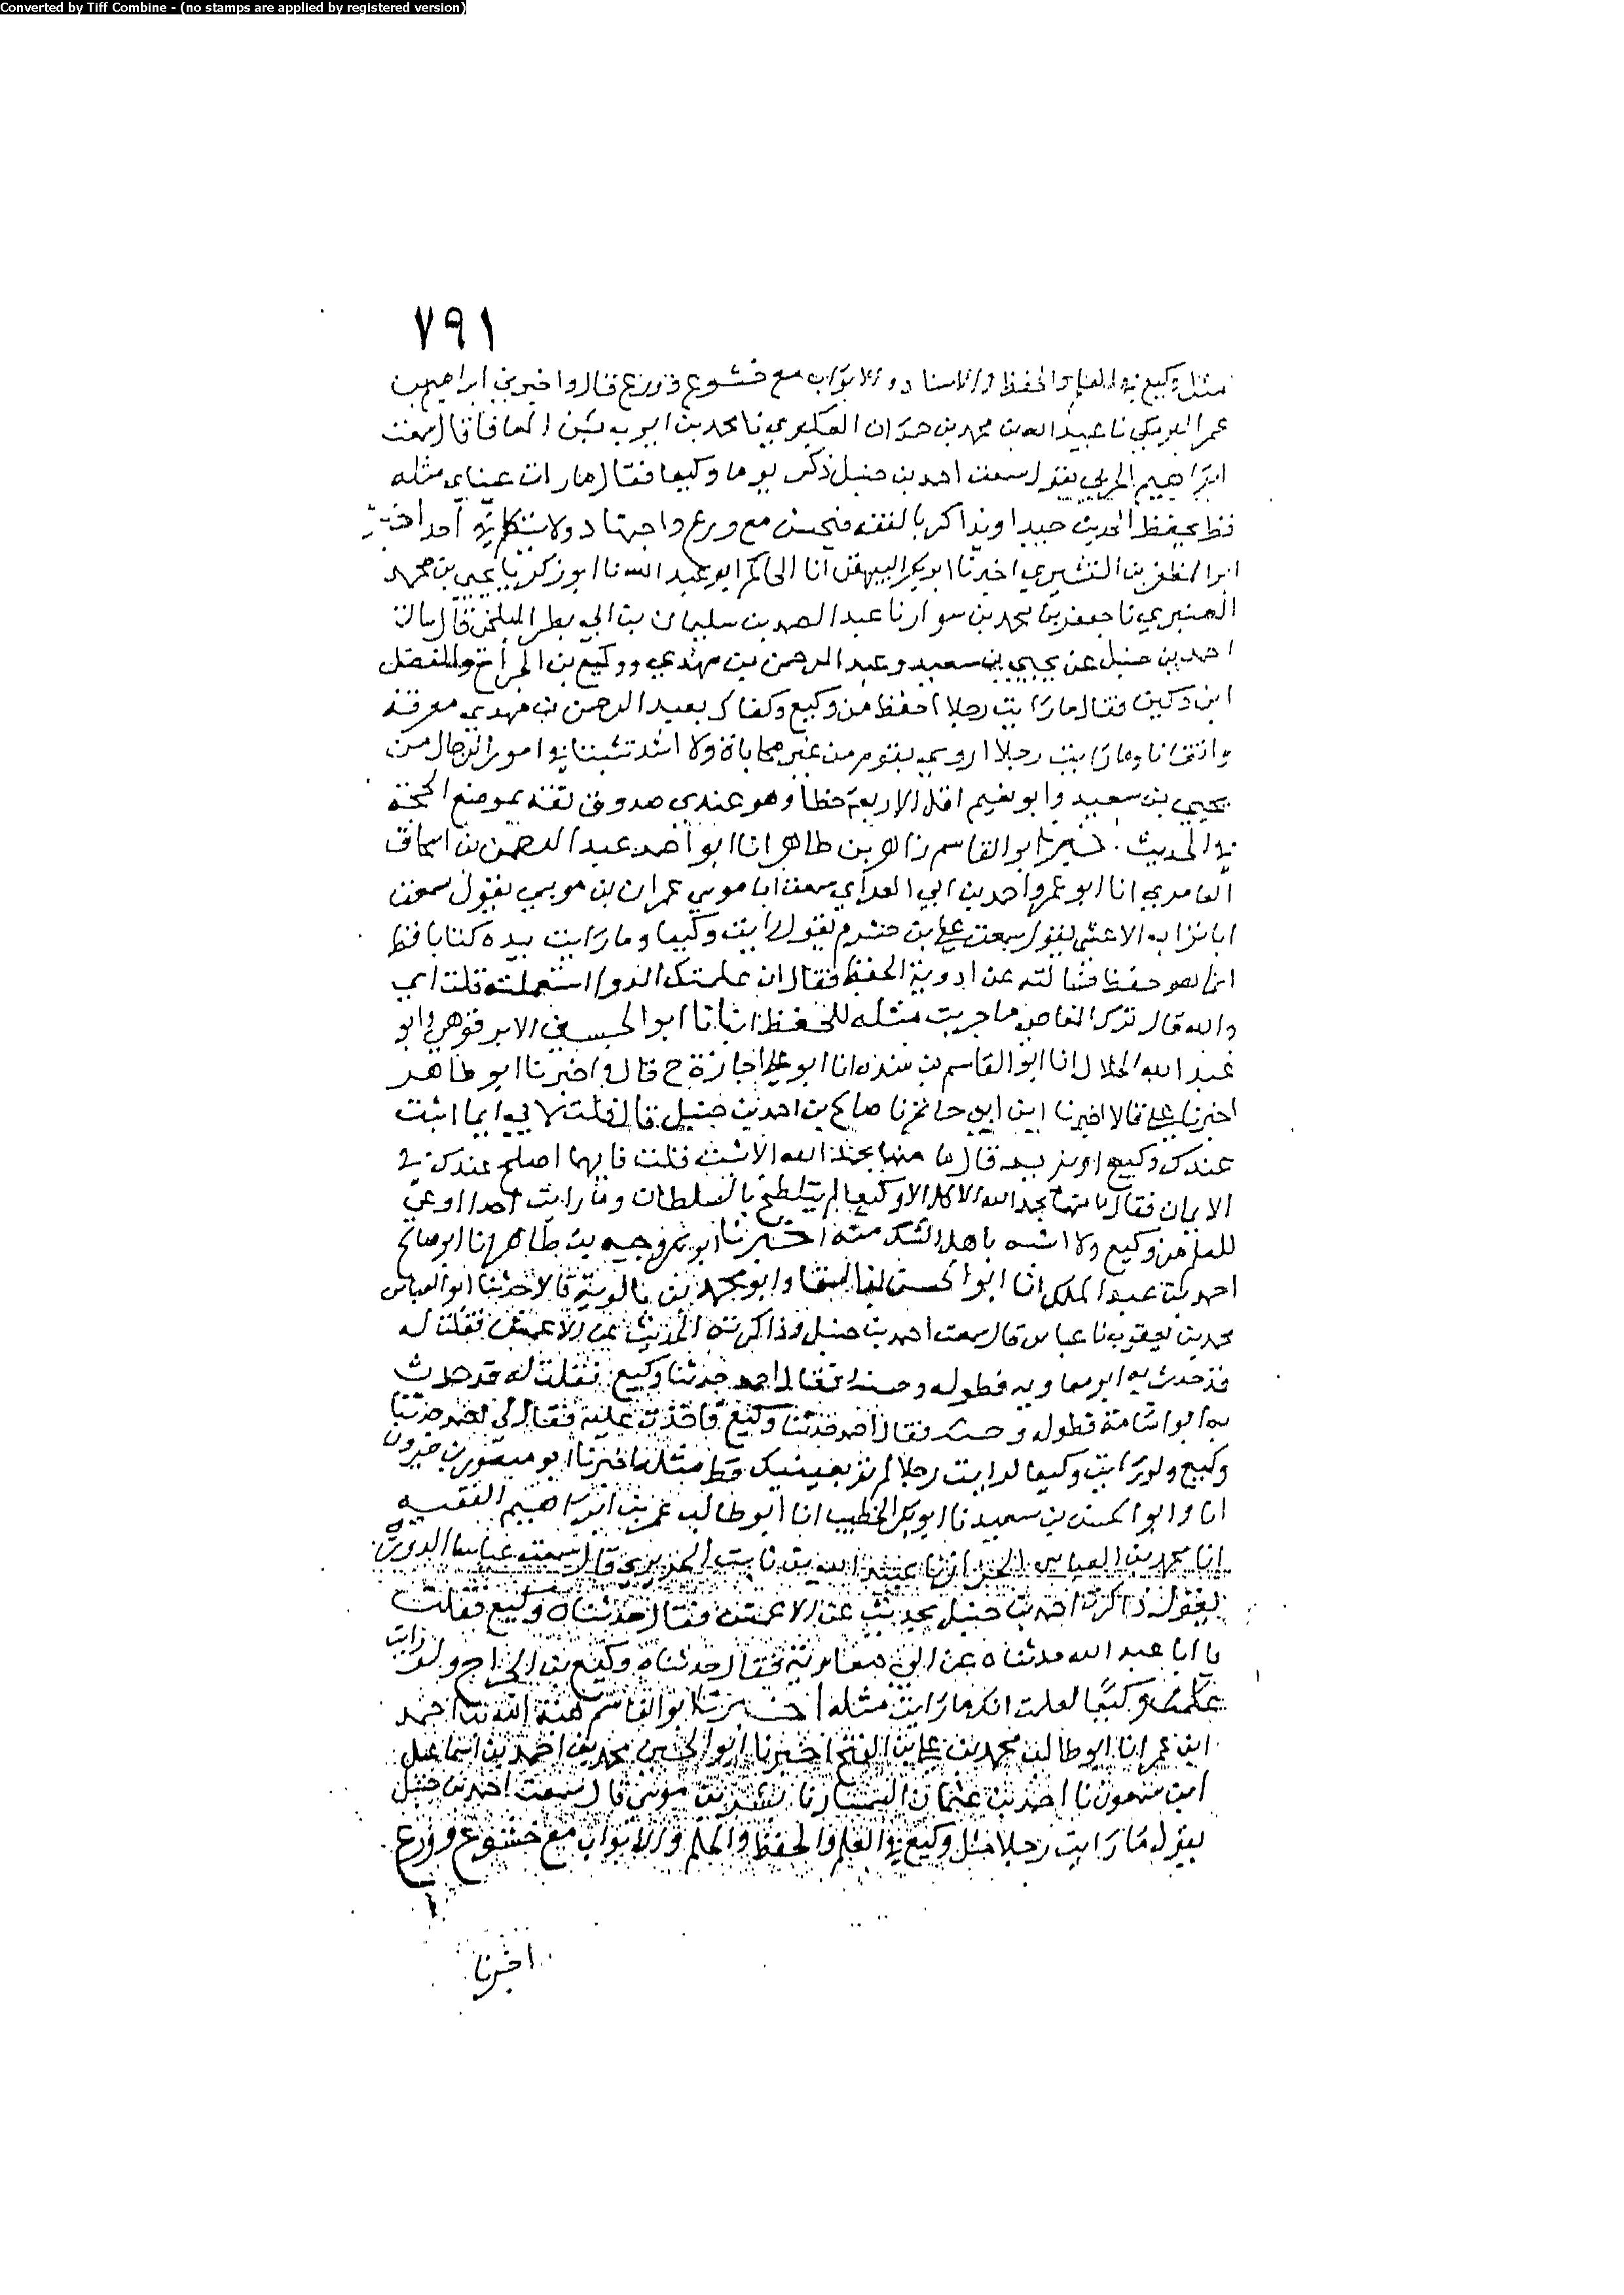 Converted by Tiff Combine - (no stamps are applied by registered version)
٧٩١
مثل وكيع في العلم والحفظ والاسناد والابواب مع خشوع وورع قال واخبرني ابراهيم بن
عمر البرمكي نا عبيد الله بن محمد بن حمدان العكبري نا محمد بن ايوب بن المعافا قال سمعت
ابراهيم الحربي يقول سمعت احمد بن حنبل ذكر يوما وكيعا فقال ما رات عيناي مثله
قط يحفظ الحديث جيدا ويذاكر بالفقه فيحسن مع ورع واجتهاد ولا يتكلم في أحد
ابو المظفر بن القشيري اخبرنا ابو بكر البيهقي انا الحاكم ابو عبد الله نا ابو زكريا يحيى بن محمد
العنبري نا جعفر بن محمد بن سوار نا عبد الصمد بن سليمان بن ابي مطر البلخي قال سالت
احمد بن حنبل عن يحيى بن سعيد وعبد الرحمن بن مهدي ووكيع بن الجراح والفضل
ابن دكين فقال ما رايت رجلا احفظ من وكيع وكفاك بعبد الرحمن بن مهدي معرفة
واتقانا وما رايت رجلا بقوم من غير محاباة ولا اشد تثبتا في امور الرجال من
يحيى بن سعيد وابو نعيم اقل الاربعة خطا وهو عندي صدوق ثقة بموضع الحجة
في الحديث. اخبرنا ابو القاسم زاهر بن طاهر انا ابو احمد عبد الرحمن بن اسحاق
العامري انا ابو عمرو احمد بن ابي سمعت ابا موسى عمران بن موسى يقول سمعت
ابا تراب الاعشى يقول سمعت علي بن خشرم يقول رايت وكيعا وما رايت بيده كتابا قط
انما هو حفظ فسالته عن ادوية الحفظ فقال ان علمتك الدوا استعملته قلت اي
والله قال ترك المعاصي ما جربت مثله للحفظ انبانا ابو الحسين الابرقوهي وابو
عبد الله الخلال انا ابو القاسم بن منده انا ابو علي اجازة ح قال واخبرنا ابو طاهر
اخبرنا علي قالا اخبرنا ابن ابي حاتم نا صالح بن احمد بن حنبل قال قلت لابي ايما اثبت
عندك وكيع او يزيد قال ما منهما بحمد الله الا ثبت قلت فايهما اصلح عندك في
الابدان فقال ما منهما بحمد الله الا كل الا وكيعا لم يتلطخ بالسلطان وما رايت احدا اوعى
للعلم من وكيع ولا اشبه باهل النسك منه اخبرنا ابو بكر وجيه بن طاهر انا ابو صالح
احمد بن عبد الملك انا ابو الحسن بن السقا وابو محمد بن بالويه قالا حدثنا ابو العباس
محمد بن يعقوب نا عباس قال سمعت احمد بن حنبل وذاكرته الحديث عن الاعمش فقلت له
قد حدث به ابو معاويه فطوله وحسنه فقال احمد حدثنا وكيع فقلت له قد حدث
به ابو اسامة فطوله وحسنه فقال احمد حدثنا وكيع فاخذت عليه فقال لي احمد حدثنا
وكيع ولو رايت وكيعا لرايت رجلا لم تر بعينيك قط مثله اخبرنا ابو منصور بن خيرون
انا وابو الحسن بن سعيد نا ابو بكر الخطيب انا ابو طالب عمر بن ابراهيم الفقيه
انا محمد بن العباس الخزاز نا عبيد الله بن ثابت الحريري قال سمعت عباسا الدوري
يقول ذاكرت احمد بن حنبل بحديث عن الاعمش فقال حدثناه وكيع فقلت
يا ابا عبد الله حدثناه عن ابي معاوية فقال حدثناه وكيع بن الجراح ولو رايت
وكيعا لعلمت انك ما رايت مثله اخبرنا ابو القاسم هبة الله بن احمد
ابن عمر انا ابو طالب محمد بن علي بن الفتح اخبرنا ابو الحسين محمد بن احمد بن اسماعيل
ابن سمعون نا احمد بن عثمان السمسار نا بشر بن موسى قال سمعت احمد بن حنبل
يقول ما رايت رجلا مثل وكيع في العلم والحفظ والحلم والابواب مع خشوع وورع
اخبرنا